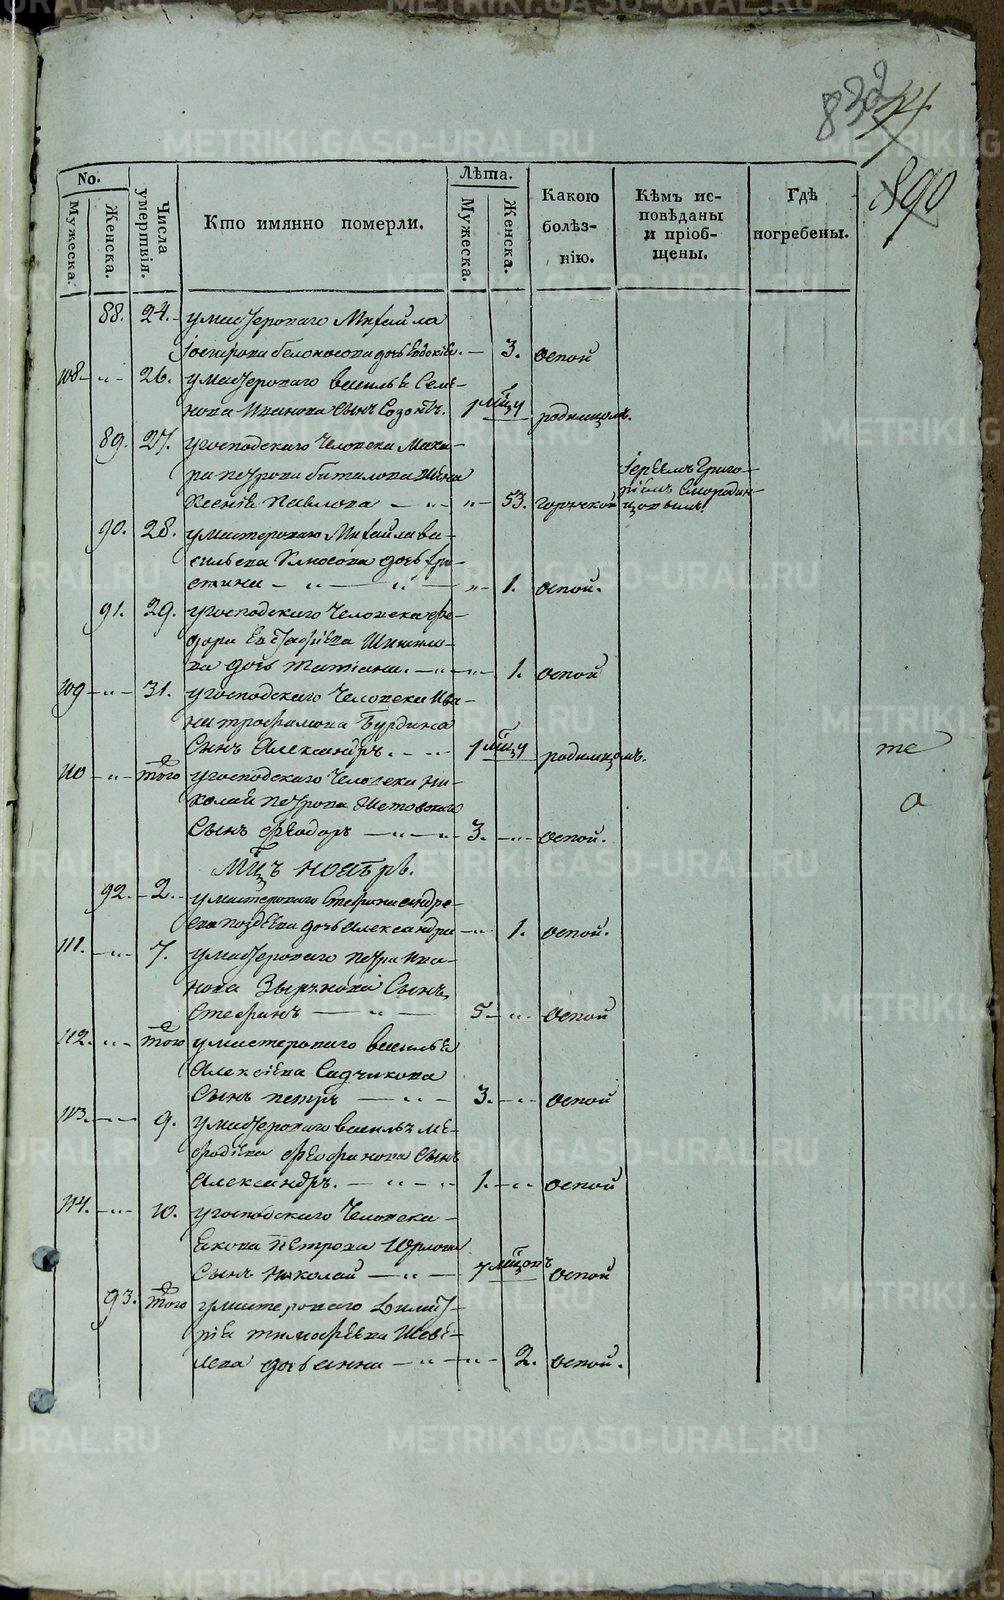 832
890
No.
Мужеска.
Женска.
Числа умертвія.
Кто имянно померли.
Лѣта.
Мужеска.
Женска.
Какою
болѣз-
нію.
Кѣмъ ис-
повѣданы
и пріоб-
щены.
Гдѣ
погребены.
88. 24. умастероваго Михаила
Белоносова дочь Евдокія. — 3. оспой
108 - „ - 26. умастероваго василья Семе-
нова Иванова Сынъ Созонтъ. 1 мцу родимцомъ.
89. 27. угосподскаго Человека Мака-
ра петрова битилова жена
Ксенія Павлова — „ - „ - 53. горячкой
Іереемъ Григо-
ріемъ Смородин-
цовымъ.
90. 28. умастероваго Михайла ва-
сильева Клюсова дочь Хри-
стина - „ — „ — „ - 1. оспой.
91. 29. угосподскаго Человека фе-
дора Евстафіева Шишило-
ва дочь татіана. - „ - „ - 1. оспой
109 - „ - 31. угосподскаго Человека Ива-
на трофимова Бурдина
Сынъ Александръ. - „ - 1 мцу родимцомъ.
110 - „ - того угосподскаго Человека ни-
колая петрова
Сынъ Феодоръ — „ - 3. - „ - оспой.
Мцъ ноябрь.
92. - 2. - умастероваго Стефана андре-
ева поздѣева дочь александра - „ - 1. оспой.
111. - „ - 7. умастероваго петра ива-
нова Зырянова Сынъ
Стефанъ — „ — 5 - „ - оспой
112. - „ - того умастероваго василья
Алексѣева Садчикова
Сынъ петръ — „ - 3. - „ - оспой
113. - „ - 9. умастероваго василья ме-
фодіева феофанова Сынъ
Александръ. - „ - „ - 1. - „ - оспой
114. - „ - 10. угосподскаго Человека
Екова Петрова Юрлова
Сынъ николай — „ - 7 мцовъ оспой
93. того умастероваго Димит-
рія тимофеева Шеве-
лева дочь анна — „ - „ - 2. оспой.
те
а
METRIKI.GASO-URAL.RU